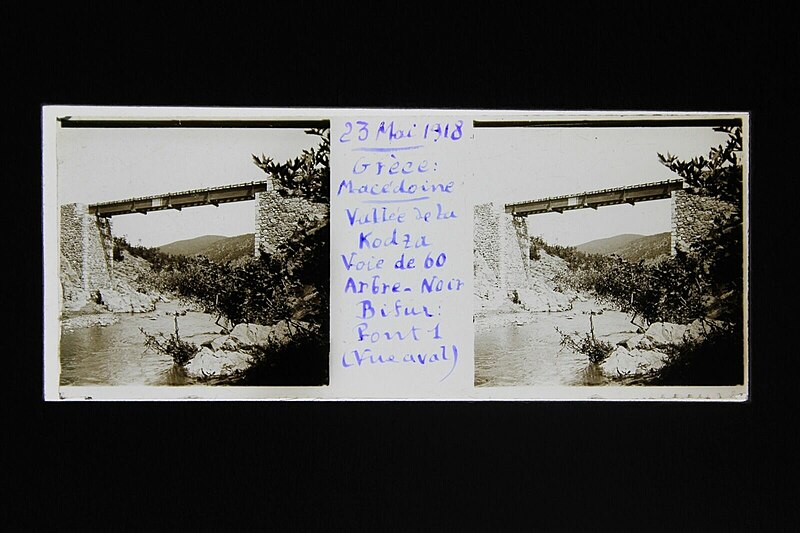 23 Mai 1918
Grèce:
Macédoine
Vallée de la
Kodza
Voie de 60
Arbre-Noir
Bifur:
Pont 1
(Vue aval)